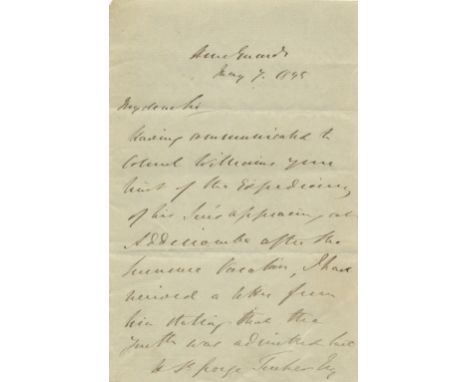 Horse Guards
May 7. 1845
My dear Sir
Having communicated to
Colonel Williams your
hint of the Expediency
of his Son's appearing at
Addiscombe after the
Summer Vacation, I have
received a letter from
him stating that the
Youth was admitted but
to St. George Tucker Esq